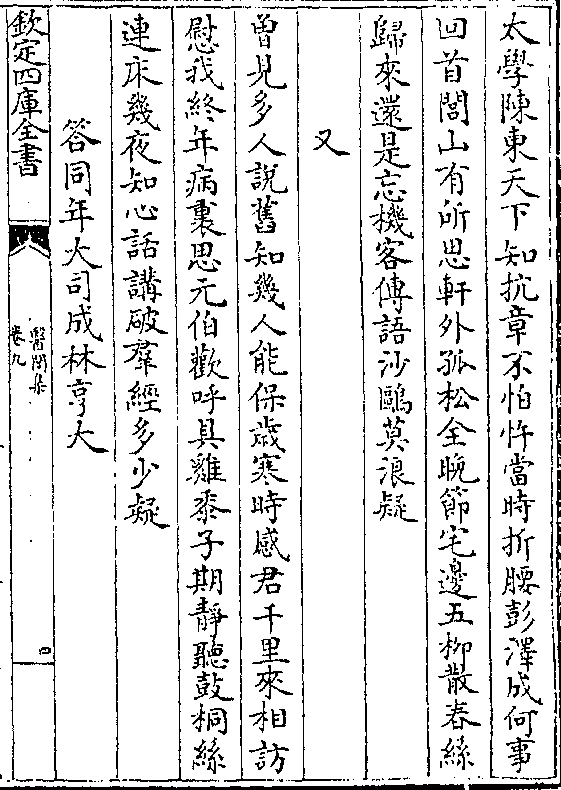 太學陳東天下知抗章不怕忤當時折腰彭澤成何事
回首閭山有所思軒外孤松全晚節宅邊五柳散春絲
歸來還是忘機客傳語沙鷗莫浪疑
又
曾見多人說舊知幾人能保歲寒時感君千里來相訪
慰我終年病裏思元伯歡呼具雞黍子期靜聽鼓桐絲
連床幾夜知心話講破羣經多少疑
答同年大司成林亨大
欽定四庫全書
醫閭集
卷九
四